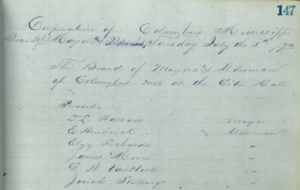 147
Corporation of Columbus Mississippi
Board of Mayor & Aldermen, Tuesday July the 5th
The Board of Mayor & Alderman
of Columbus met at the City Hall
Present
Mayor
E Hendrick Alderman "
Elzy Richards "
James Moore "
G. W. "
Josiah Stallings "